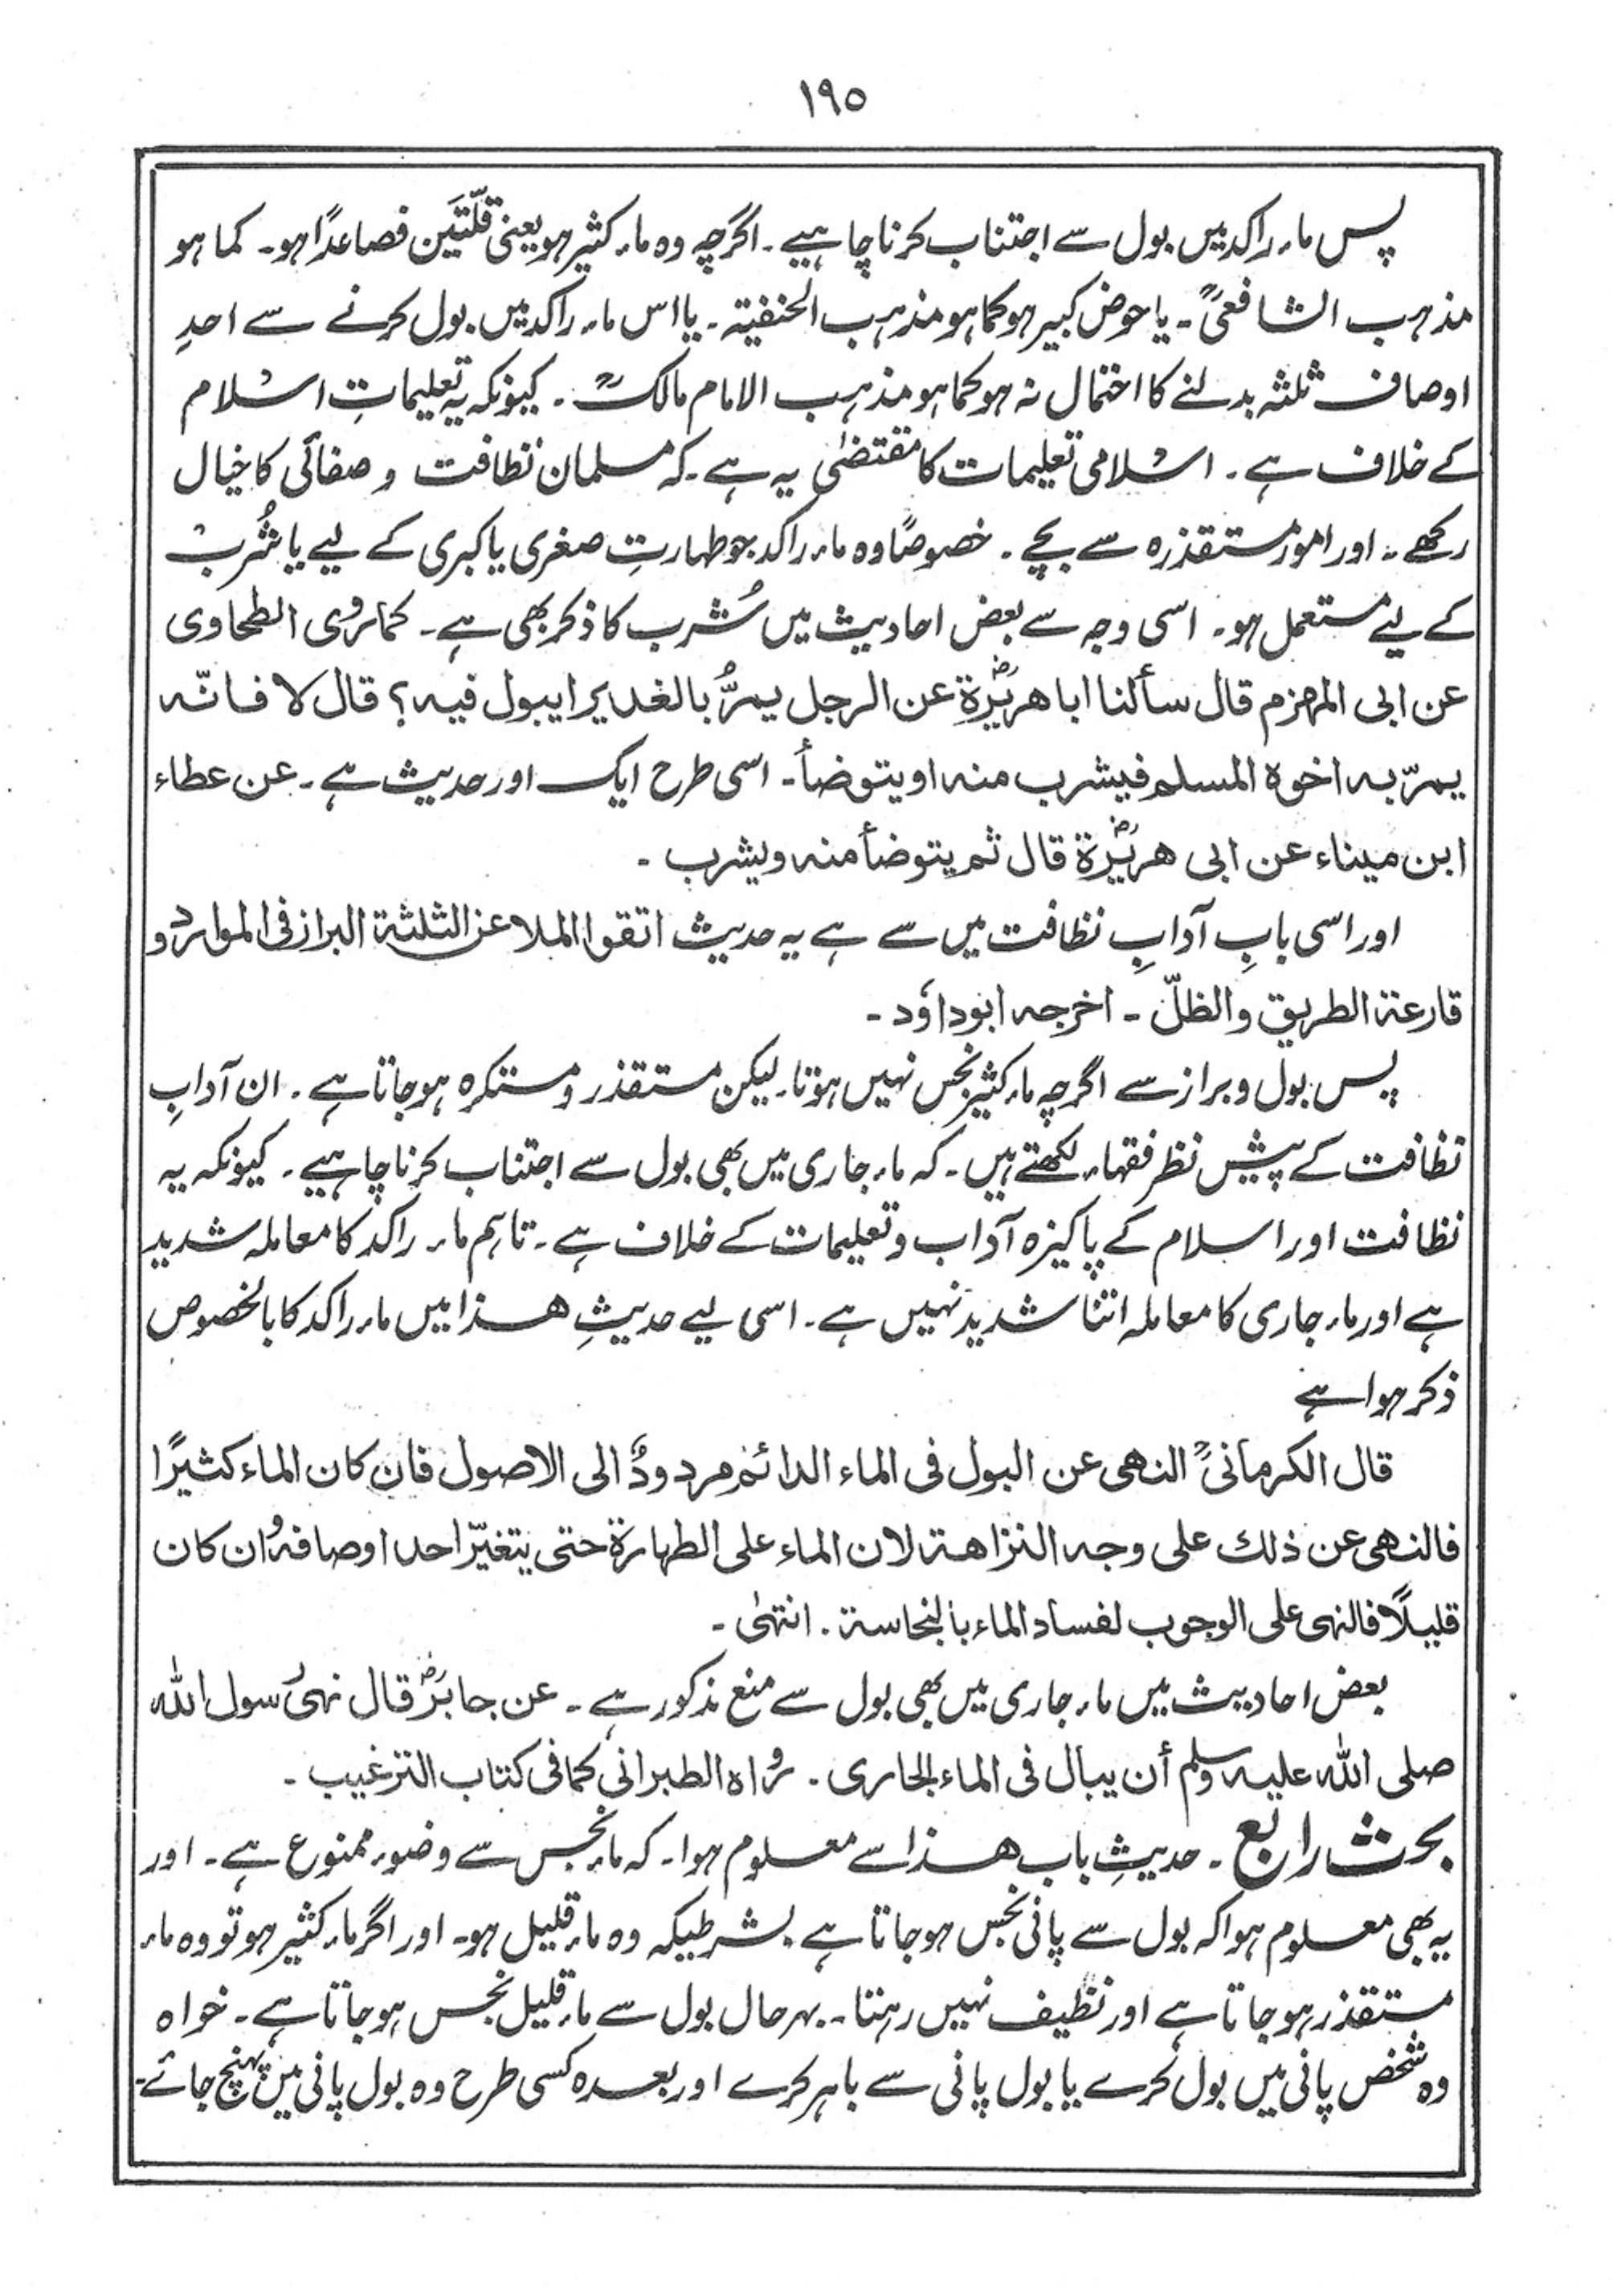 ۱۹۵
پس ماء راکد میں بول سے اجتناب کرنا چاہیے۔ اگرچہ وہ ماء کثیر ہو یعنی قلّتَین فصاعدًا ہو۔ کما ہو
مذہب الشافعیؒ۔ یا حوض کبیر ہو کما ہو مذہب الحنفیۃ۔ یا اس ماء راکد میں بول کرنے سے احدِ
اوصاف ثلثہ بدلنے کا احتمال نہ ہو کما ہو مذہب الامام مالکؒ۔ کیونکہ یہ تعلیماتِ اسلام
کے خلاف ہے۔ اسلامی تعلیمات کا مقتضیٰ یہ ہے۔ کہ مسلمان نظافت و صفائی کا خیال
رکھے۔ اور امور مستقذرہ سے بچے۔ خصوصًا وہ ماء راکد جو طہارتِ صغری یا کبری کے لیے یا شُرب
کے لیے مستعمل ہو۔ اسی وجہ سے بعض احادیث میں شُرب کا ذکر بھی ہے۔ کما روی الطحاوی
عن ابی المہزم قال سألنا ابا ھریرۃؓ عن الرجل یمرُّ بالغدیر ایبول فیہ؟ قال لا فانّہ
یمرّ بہ اخوہ المسلم فیشرب منہ او یتوضأ۔ اسی طرح ایک اور حدیث ہے۔ عن عطاء
ابن میناء عن ابی ھریرۃؓ قال ثم یتوضأ منہ ویشرب۔
اور اسی بابِ آدابِ نظافت میں سے ہے یہ حدیث اتقوا الملاعن الثلثۃ البراز فی الموارد و
قارعۃ الطریق والظلّ۔ اخرجہ ابوداؤد۔
پس بول و براز سے اگرچہ ماء کثیر نجس نہیں ہوتا۔ لیکن مستقذر و مستکرہ ہو جاتا ہے۔ ان آدابِ
نظافت کے پیش نظر فقہاء لکھتے ہیں۔ کہ ماء جاری میں بھی بول سے اجتناب کرنا چاہیے۔ کیونکہ یہ
نظافت اور اسلام کے پاکیزہ آداب و تعلیمات کے خلاف ہے۔ تاہم ماء راکد کا معاملہ شدید
ہے اور ماء جاری کا معاملہ اتنا شدید نہیں ہے۔ اسی لیے حدیثِ ھذا میں ماء راکد کا بالخصوص
ذکر ہوا ہے
قال الکرمانیؒ النھی عن البول فی الماء الدائم مردودٌ الی الاصول فان کان الماء کثیرًا
فالنھی عن ذلک علی وجہ النزاھۃ لان الماء علی الطہارۃ حتی یتغیّر احد اوصافہ وان کان
قلیلًا فالنہی علی الوجوب لفساد الماء بالنجاسۃ۔ انتہٰی۔
بعض احادیث میں ماء جاری میں بھی بول سے منع مذکور ہے۔ عن جابرؓ قال نہیٰ رسول اللہ
صلی اللہ علیہ وسلم أن یبال فی الماء الجاری۔ رواہ الطبرانی کما فی کتاب الترغیب۔
بحث رابع۔ حدیثِ باب ھذا سے معلوم ہوا۔ کہ ماء نجس سے وضوء ممنوع ہے۔ اور
یہ بھی معلوم ہوا کہ بول سے پانی نجس ہو جاتا ہے بشرطیکہ وہ ماء قلیل ہو۔ اور اگر ماء کثیر ہو تو وہ ماء
مستقذر ہو جاتا ہے اور نظیف نہیں رہتا۔ بہرحال بول سے ماء قلیل نجس ہو جاتا ہے۔ خواہ
وہ شخص پانی میں بول کرے یا بول پانی سے باہر کرے اور بعدہ کسی طرح وہ بول پانی میں پہنچ جائے۔